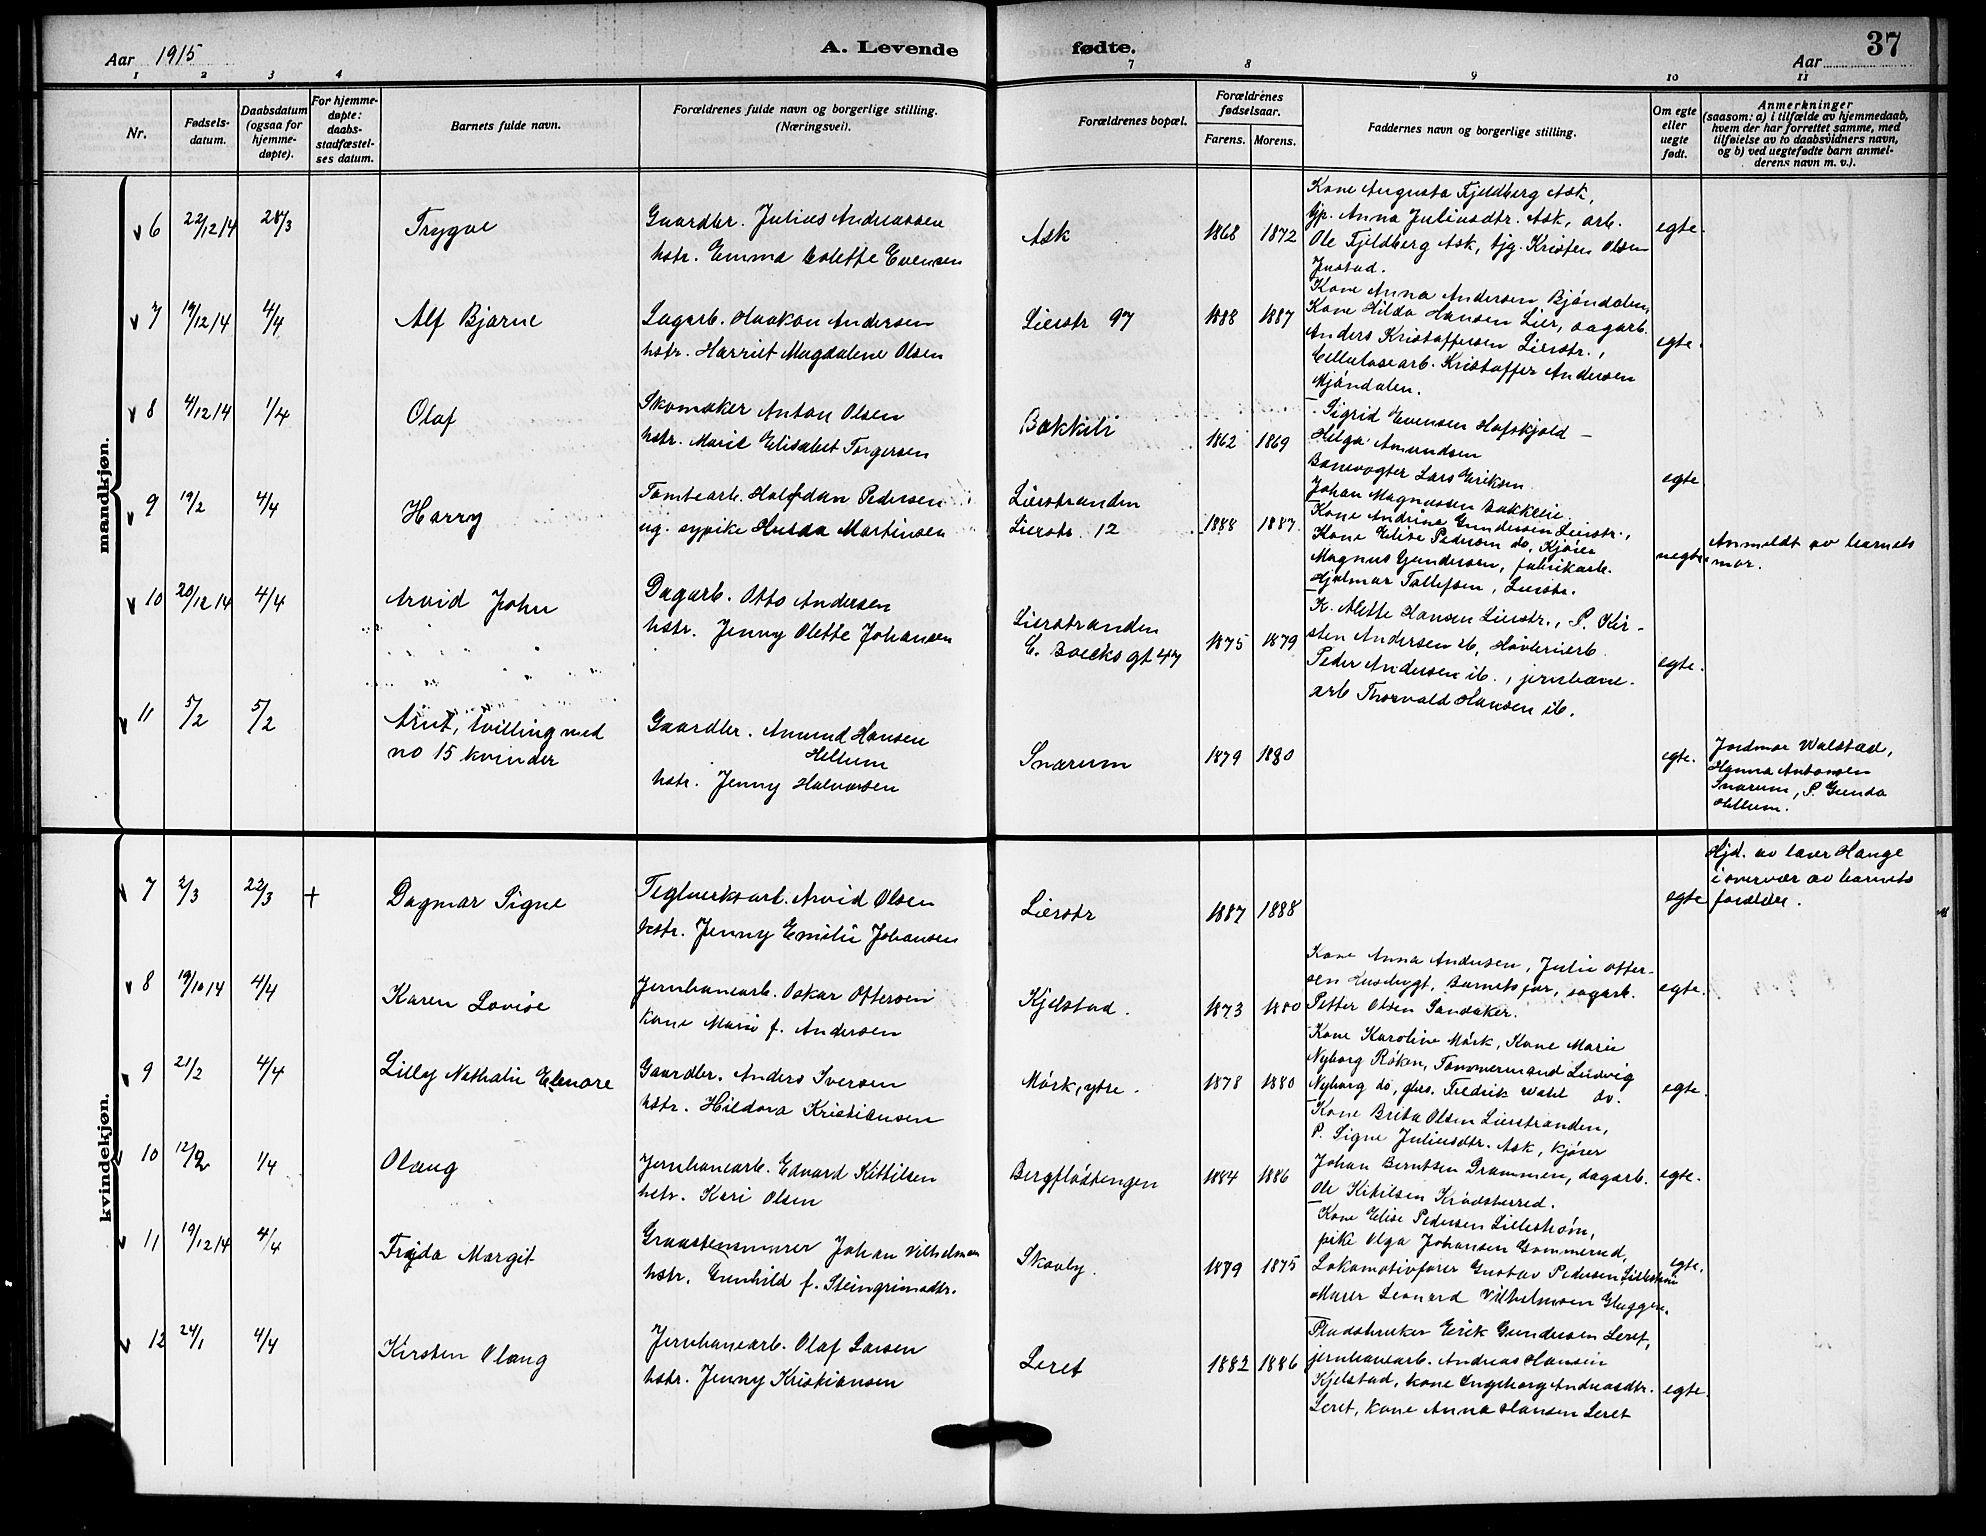 Aar 1915
A. Levende fødte.
37
Aar
1 2 3 4 7 8 9 10 11
Nr.
Fødsels-
datum.
Daabsdatum
(ogsaa for
hjemme-
døpte).
For hjemme-
døpte:
daabs-
stadfæstel-
ses datum.
Barnets fulde navn.
Forældrenes fulde navn og borgerlige stilling.
(Næringsvei).
Forældrenes bopæl.
Forældrenes
fødselsaar.
Farens. Morens.
Faddernes navn og borgerlige stilling.
Om egte
eller
uegte
født.
Anmerkninger
(saasom: a) i tilfælde av hjemmedaab,
hvem der har forrettet samme, med
tilføielse av to daabsvidners navn,
og b) ved uegtefødte barn anmel-
derens navn m. v.).
mandkjøn.
6 22/12 14 28/3 Trygve
Gaardbr. Julius Andreassen
hstr. Emma Colette Evensen
Ask 1868 1872
Kone Augusta Fjeldberg Ask,
Gp. Anna Juliusdtr. Ask, arb.
Ole Fjeldberg Ask, tjg. Kristen Olsen
Justad.
egte
7 19/12 14 4/4 Alf Bjarne
Sagarb. Haakon Andersen
hstr. Harriet Magdalene Olsen
Lierstr 97 1888 1887
Kone Anna Andersen Bjöndalen,
Kone Hilda Hansen Lier, sagarb.
Anders Kristoffersen Lierstr.,
Cellulosearb. Kristoffer Andersen
Mjöndalen.
egte.
8 4/12 14 1/4 Olaf
Skomaker Anton Olsen
hstr. Marie Elisabet Torgersen
Bakkeli 1862 1869
Sigrid Evensen Hafskjold -
Helga Amundsen
Banevogter Lars Eriksen
Johan Magnussen Bakkelie.
egte
9 19/2 4/4 Harry
Tomtearb. Halfdan Pedersen
ug. sypike Hulda Martinsen
Lierstranden
Lierstr. 12
1888 1887
Kone Andrine Gundersen Lierstr.,
Kone Elise Pedersen do, Kjörer
Magnus Gundersen, fabrikarb.
Hjalmar Tollefsen, Lierstr.
uegte
Anmeldt av barnets
mor.
10 20/12 14 4/4 Arvid John
Dagarb. Otto Andersen
hstr. Jenny Olette Johansen
Lierstranden
C. Boecks gt 47
1875 1879
K. Alette Hansen Lierstr., P. Kir-
sten Andersen ib, Hövleriarb.
Peder Andersen ib., jernbane-
arb Thorvald Hansen ib.
egte.
11 5/2 5/2 Arnt, tvilling med
no 15 kvinder
Gaardbr. Amund Hansen
Hellum
hstr. Jenny Halvorsen
Snarum 1879 1880
egte.
Jordmor Walstad,
Hanna Antonsen
Snarum, P. Gunda
Hellum.
kvindekjøn.
7 2/3 22/3 + Dagmar Signe
Teglverksarb. Arvid Olsen
hstr. Jenny Emilie Johansen
Lierstr 1887 1888
egte
Hjd. av lærer Hauge
i overvær av barnets
forældre.
8 19/10 14 4/4 Karen Lovise
Jernbanearb. Oskar Ottersen
kone Marie f. Andersen
Kjelstad. 1873 1880
Kone Anna Andersen, Julie Otter-
sen Husebygt, Barnets far, sagarb.
Petter Olsen Sandaker.
egte.
9 21/2 4/4 Lilly Nathalie Elenore
Gaardbr. Anders Iversen
hstr. Hildora Kristiansen
Mörk, ytre. 1878 1880
Kone Karoline Mörk, Kone Marie
Nyborg Röken, Tömmermand Ludvig
Nyborg do, gbrs. Fredrik Wahl do.
egte.
10 12/2 1/4 Olaug
Jernbanearb. Edvard Kittilsen
hstr. Kari Olsen
Bergflödtengen 1884 1886
Kone Brita Olsen Lierstranden,
P. Signe Juliusdtr. Ask, kjörer
Johan Berntsen Drammen, dagarb.
Ole Kitilsen Krödsherred.
egte.
11 19/12 14 4/4 Frijda Margit
Graastensmurer Johan Vilhelmsen
hstr. Gunhild f. Steingrimsdtr.
Skovly. 1879 1875
Kone Elise Pedersen Lilleström,
pike Olga Johansen Gommerud,
Lokomotivförer Gustav Pedersen Lilleström
Murer Leonard Vilhelmsen Gluggen.
egte.
12 24/1 4/4 Kirsten Olaug
Jernbanearb. Olaf Larsen
hstr. Jenny Kristiansen
Leret 1882 1886
Pladsbruker Erik Gundersen Leret,
jernbanearb. Andreas Hansen
Kjelstad, kone Ingeborg Andreasdtr.
Leret, Kone Anna Hansen Leret
egte.